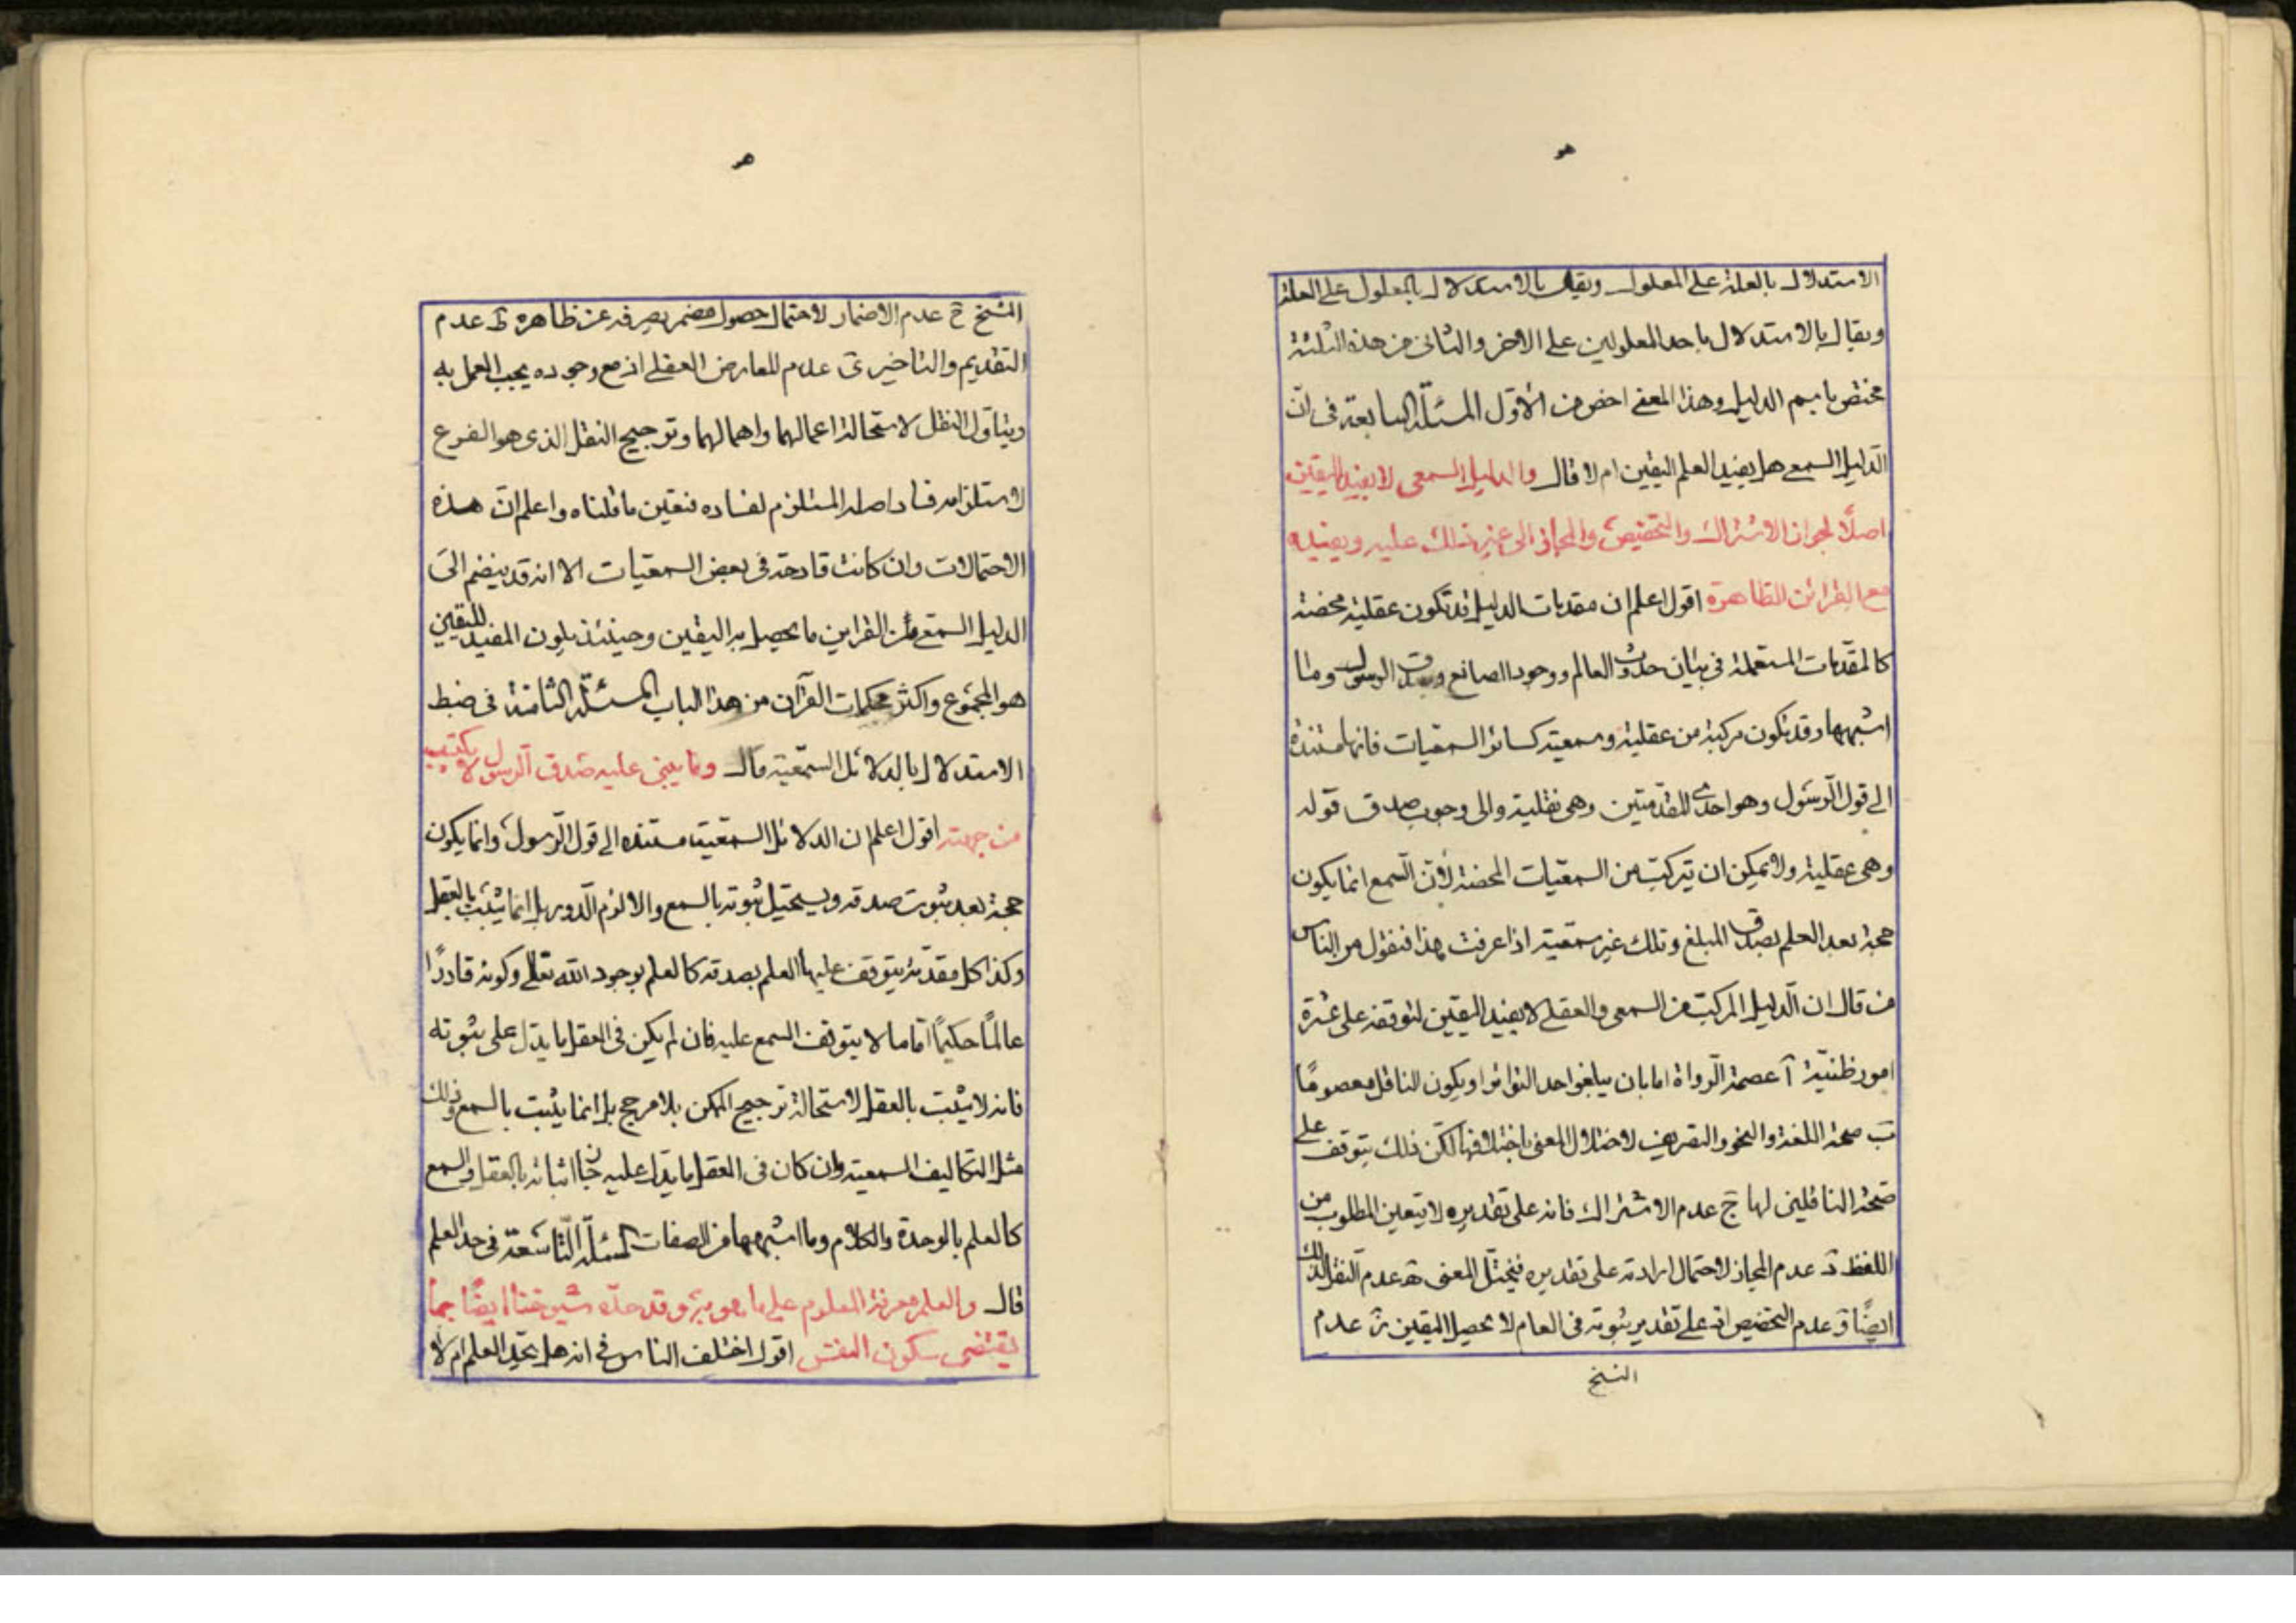 هو
الاستدلال بالعلة على المعلول ويقال بالاستدلال بالمعلول على العلة
ويقال بالاستدلال باحد المعلولين على الاخر والثانى من هذه الثلثة
مختص باسم الدليل وهذا المعنى اخص من الاوّل المسئلة السابعة فى انّ
الدليل السمعى هل يفيد العلم اليقين ام لا قال والدليل السمعى لا يفيد اليقين
اصلًا لجواز الاشتراك والتخصيص والمجاز الى غير ذلك عليه ويفيده
مع القرائن الظاهرة اقول اعلم ان مقدمات الدليل قد تكون عقلية محضة
كالمقدمات المستعملة فى بيان حدوث العالم ووجود الصانع وصدق الرسول وما
اشبهها وقد تكون مركبة من عقلية وسمعية كسائر السمعيات فانها مستندة
الى قول الرسول وهو احدى المقدمتين وهى نقلية والى وجوب صدق قوله
وهى عقلية ولا يمكن ان تتركب من السمعيات المحضة لانّ السمع انما يكون
حجة بعد العلم بصدق المبلغ وتلك غير سمعية اذا عرفت هذا فنقول من الناس
من قال ان الدليل المركب من السمعى والعقلى لا يفيد اليقين لتوقفه على عشرة
امور ظنيّة آ عصمة الرّواة اما بان يبلغوا حد التواتر او يكون الناقل معصومًا
ب صحة اللغة والنحو والتصريف لاختلال المعنى باختلافها لكن ذلك يتوقف على
صحة الناقلين لها ج عدم الاشتراك فانه على تقديره لا يتعين المطلوب من
اللفظ د عدم المجاز لاحتمال ارادته على تقديره فيختل المعنى ه عدم النقل لذلك
ايضًا و عدم التخصيص اذ على تقدير ثبوته فى العام لا يحصل اليقين ز عدم
النسخ
هو
النسخ ح عدم الاضمار لاحتمال حصول مضمر يصرفه عن ظاهره ط عدم
التقديم والتاخير ى عدم المعارض العقلى اذ مع وجوده يجب العمل به
ويتاول النقل لاستحالة اعمالهما واهمالهما وترجيح النقل الذى هو الفرع
لاستلزامه فساد اصله المستلزم لفساده فتعين ما قلناه واعلم انّ هذه
الاحتمالات وان كانت قادحة فى بعض السمعيات الا انه قد ينضم الى
الدليل السمعى من القراين ما يحصل به اليقين وحينئذ يكون المفيد لليقين
هو المجموع واكثر محكمات القرآن من هذا الباب المسئلة الثامنة فى ضبط
الاستدلال بالدلائل السمعية قال وما يبنى عليه صدق الرسول لا يكتسب
من جهته اقول اعلم ان الدلائل السمعية مستنده الى قول الرّسول وانما يكون
حجة بعد ثبوت صدقه ويستحيل ثبوته بالسمع والا لزم الدور بل انما يثبت بالعقل
وكذا كل مقدمة يتوقف عليها العلم بصدقه كالعلم بوجود الله تعالى وكونه قادرًا
عالمًا حكيمًا امّا ما لا يتوقف السمع عليه فان لم يكن فى العقل ما يدل على ثبوته
فانه لا يثبت بالعقل لاستحالة ترجيح الممكن بلا مرجح بل انما يثبت بالسمع وذلك
مثل التكاليف السمعية وان كان فى العقل ما يدل عليه جاز اثباته بالعقل والسمع
كالعلم بالوحدة والكلام وما اشبهها من الصفات المسئلة التاسعة فى حد العلم
قال والعلم معرفة المعلوم على ما هو به وقد حدّه شيوخنا ايضًا بما
يقتضى سكون النفس اقول اختلف الناس فى انه هل يحد العلم ام لا